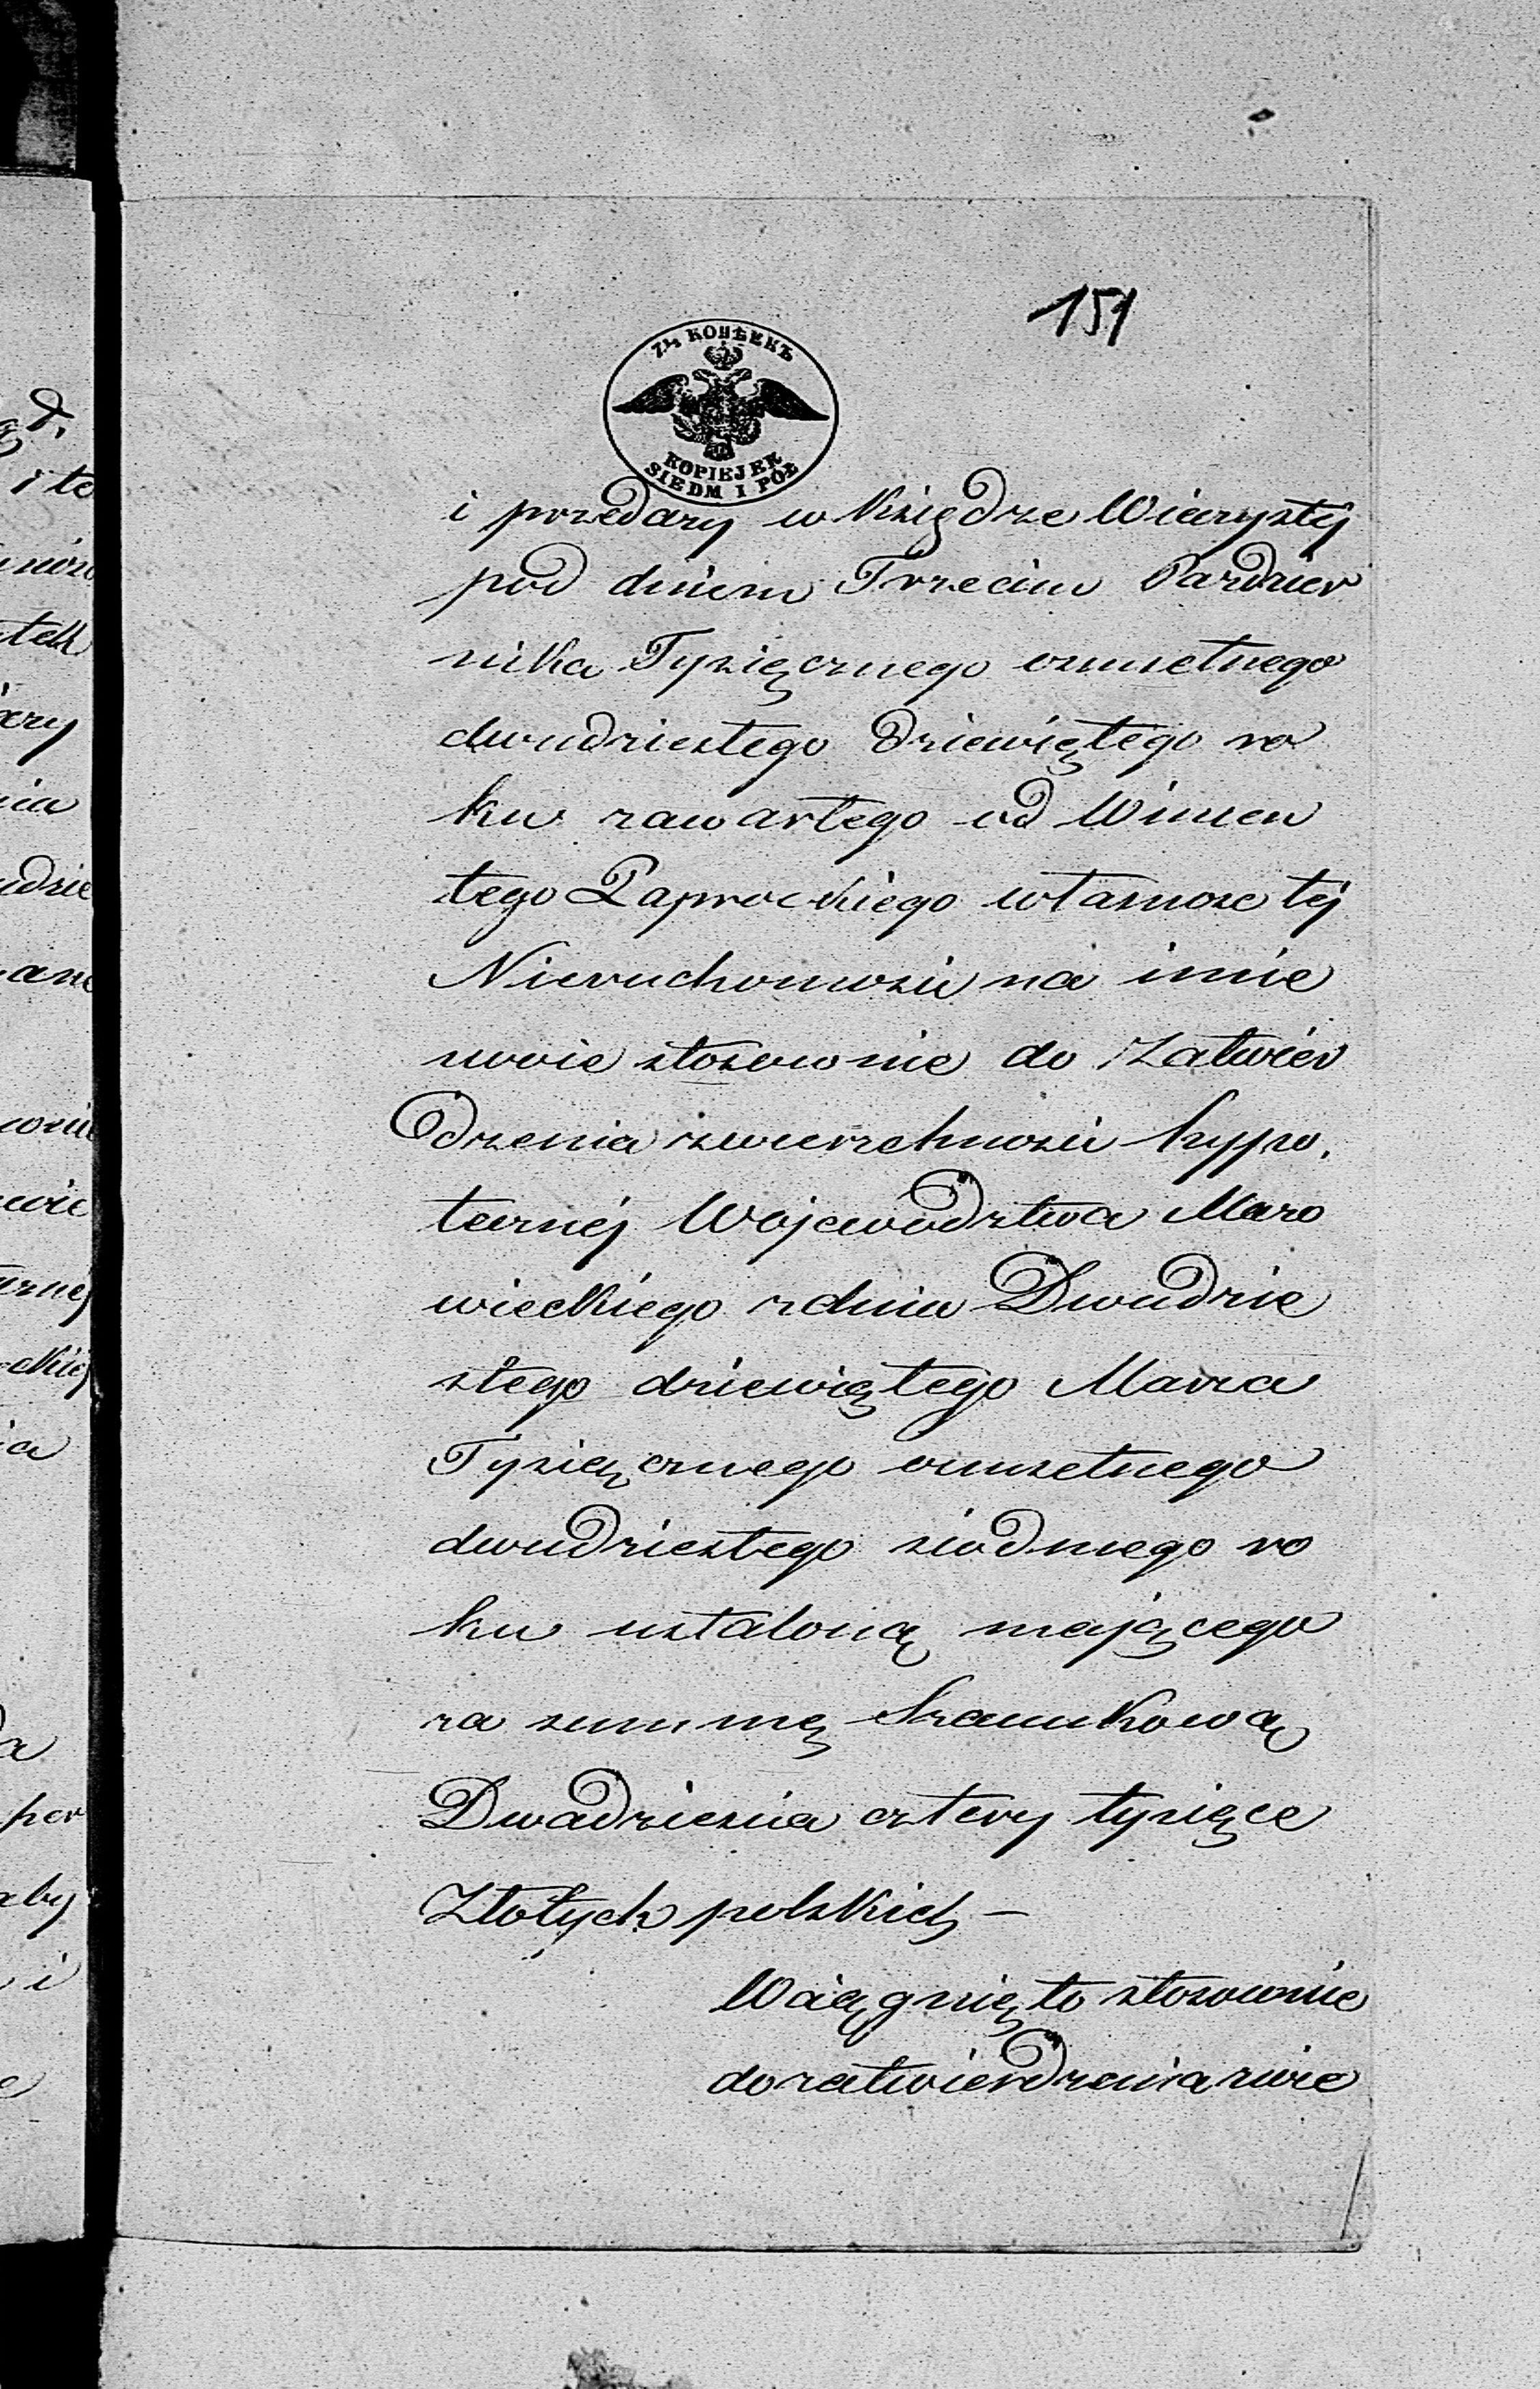 151
7½ КОПѢЕКЪ
KOPIEJEK
SIEDM I PÓŁ
i przedaży w Księdze Wieczystéj
pod dniem Trzecim Paździer
nika Tysięcznego osmsetnego
dwudziestego dziewiętego ro
ku zawartego od Wincen
tego Paprockiego własnosc téj
Nieruchomosci na imie
swoie stosownie do Zatwier
dzenia zwierzchnosci hypo,
tecznéj Województwa Mazo
wieckiego z dnia Dwudzie
stego dziewiątego Marca
Tysiącznego osmsetnego
dwudziestego siodmego ro
ku ustaloną mającego
za summę Szacunkową
Dwadziescia cztery tysięce
Złotych polskich –
Wciągnięto stosownie
do zatwierdzenia zwie